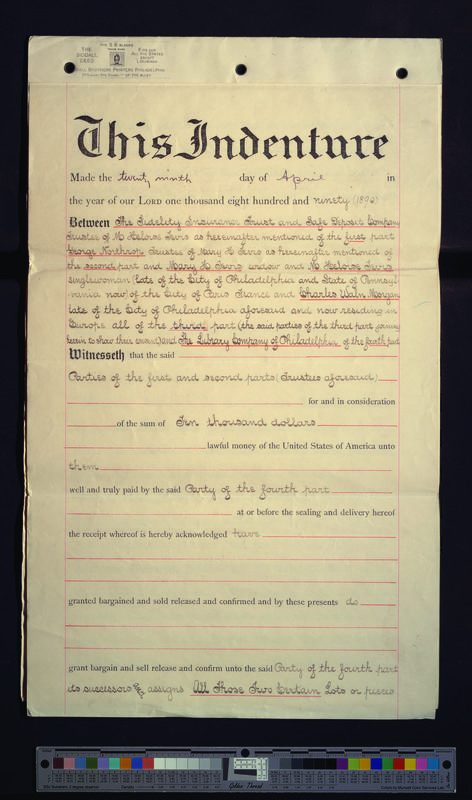 THE
BIDDALL
DEED
FOR SALE
ALL THE STATES
EXCEPT
LOUISIANA
BROTHERS PRINTERS PHILADELPHIA
This Indenture
Made the twenty ninth day of April in
the year of our LORD one thousand eight hundred and ninety (1890)
Between The Fidelity Insurance Trust and Safe Deposit Company
Trustee of M Heloise Ferris as hereinafter mentioned of the first part
George Northrop Trustee of Mary H Ferris as hereinafter mentioned of
the second part and Mary H Ferris widow and M Heloise Ferris
singlewoman (late of the City of Philadelphia and State of Pennsyl
vania now of the City of Paris France and Charles Waln Morgan
late of the City of Philadelphia aforesaid and now residing in
Europe all of the third part (the said parties of the third part joining
herein to show their assent) and The Library Company of Philadelphia of the fourth part
Witnesseth that the said
Parties of the first and second parts (Trustees aforesaid)
for and in consideration
of the sum of Ten thousand dollars
lawful money of the United States of America unto
them
well and truly paid by the said Party of the fourth part
at or before the sealing and delivery hereof
the receipt whereof is hereby acknowledged have
granted bargained and sold released and confirmed and by these presents do
grant bargain and sell release and confirm unto the said Party of the fourth part
its successors and assigns All Those Two Certain Lots or pieces